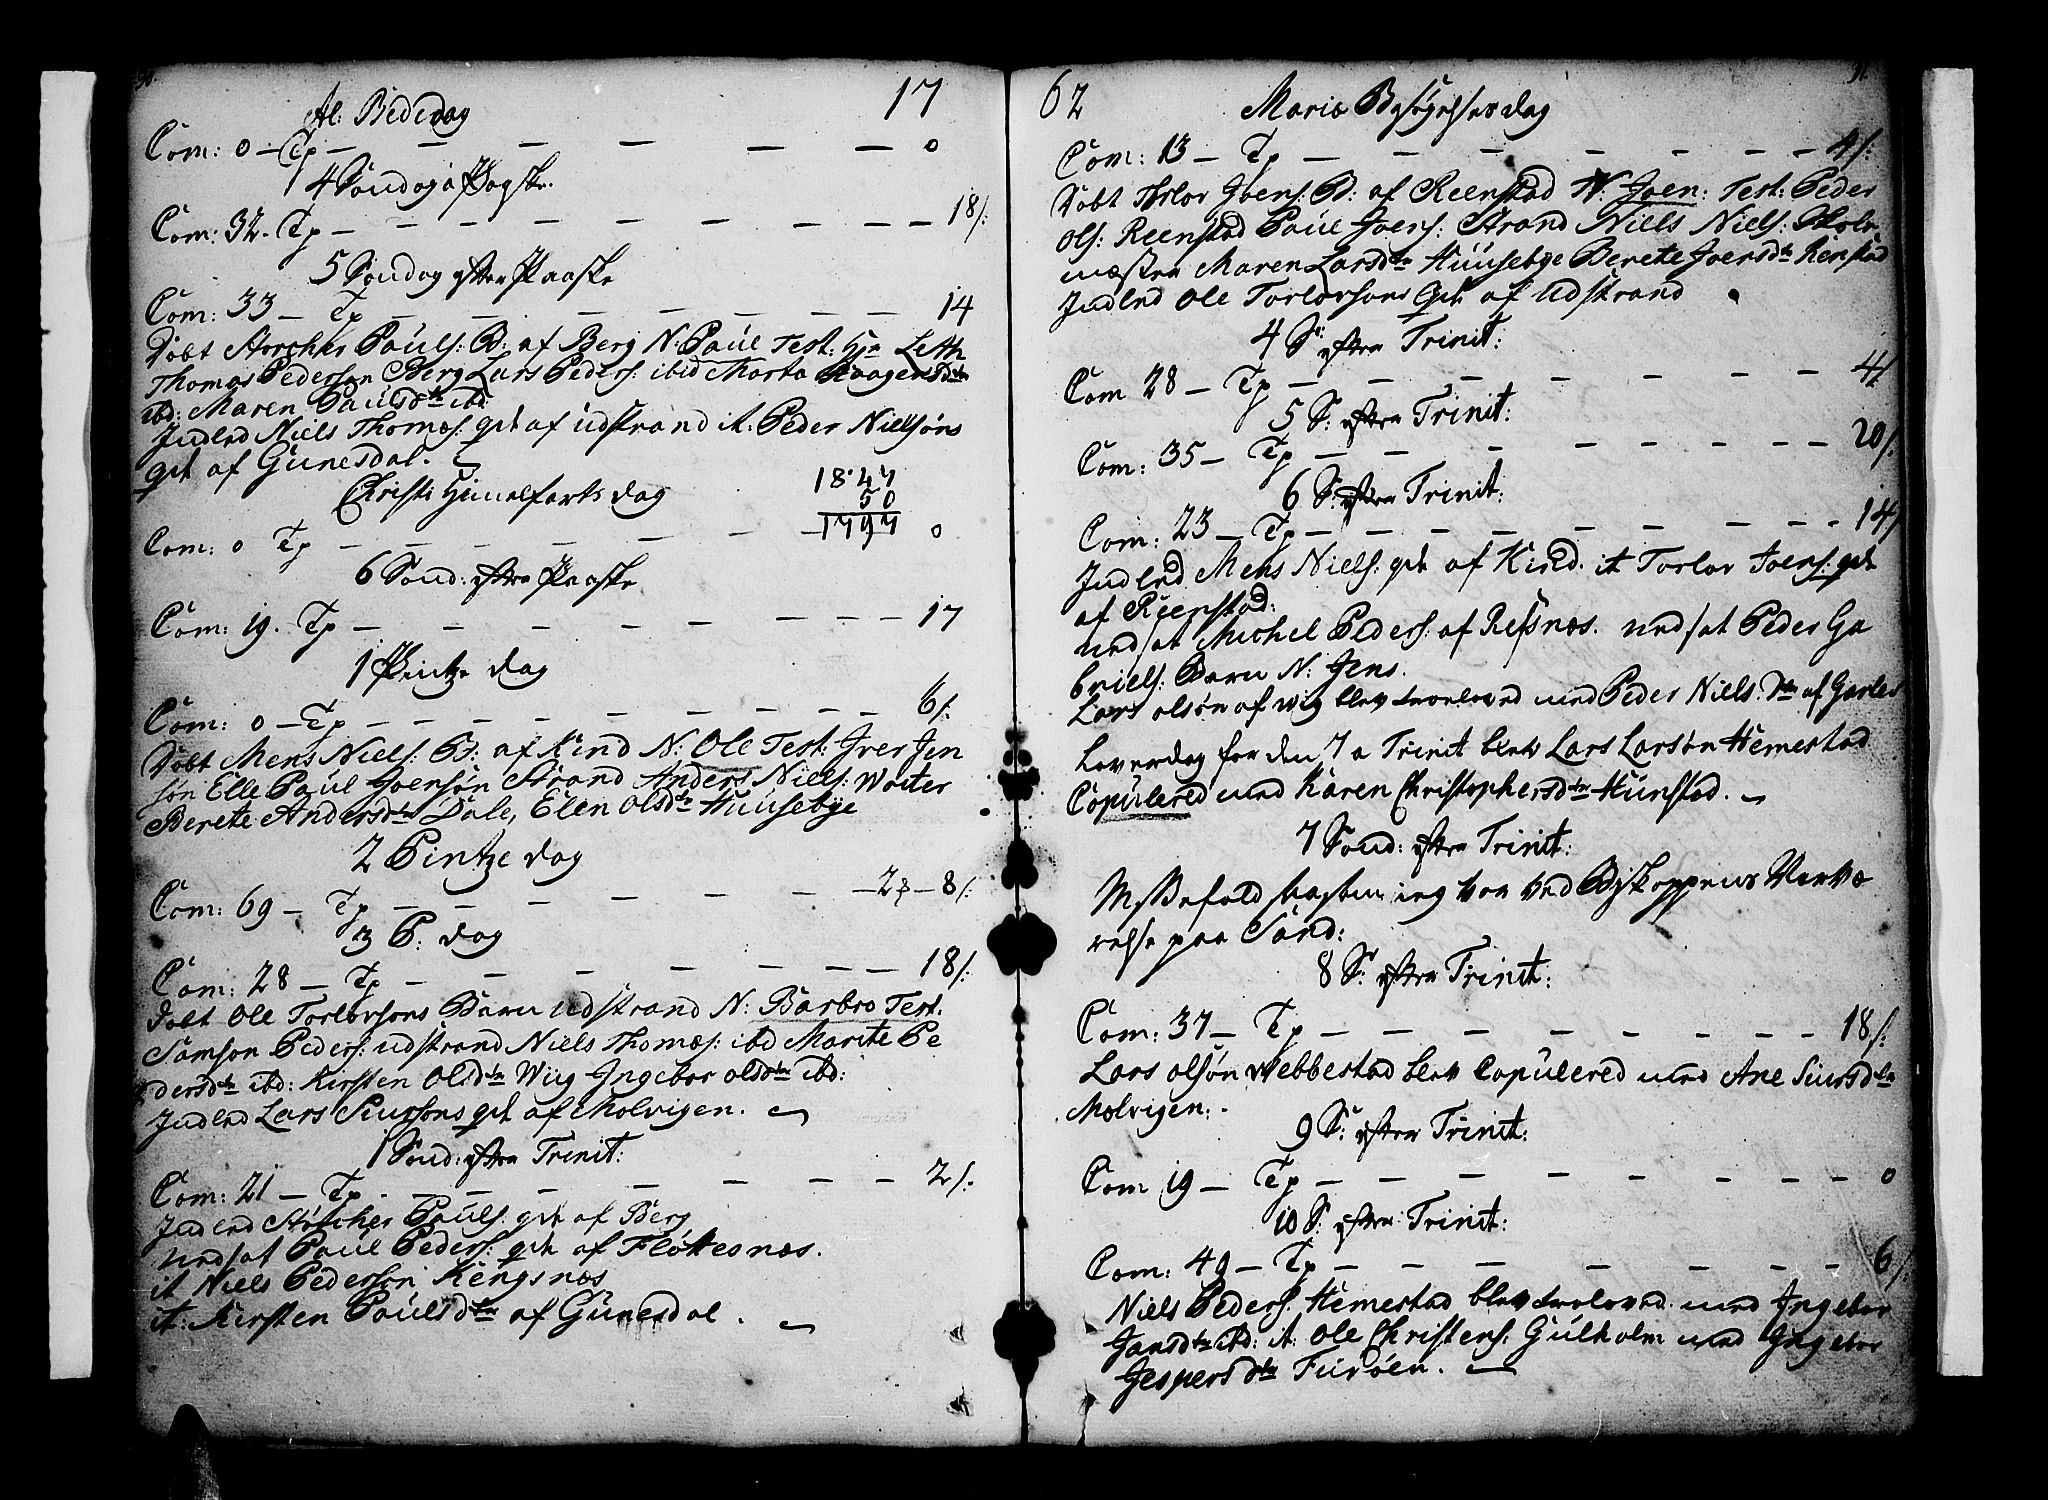 30.
17
Al: Bededag
Com: 0 – Tp – – – – – – 0
4 Søndag a Pasche.
Com: 32. Tp – – – – – – – 18/:
5 Sondag efter Paaske
Com: 33 – Tp – – – – – – – 14
Døbt Paüls: B: af Berg N: Paül Test: Hr Leth
Thomas Pederson Berg Lars Peders: ibid Marta Haagensdtr
ibd: Maren Paülsdtr ibd
Indled Niels Thomæs: qde af üdstrand it: Peder Nielsøns
qde af Günesdal.
Christi Himelfarts dag
1847
50
1797
Com: 0 Tp – – – – – – 0
6 Sønd: efter Paaske
Com: 19. Tp – – – – – – – 17
1 Pintze dag
Com: 0 – Tp – – – – – – – 6/:
Døbt Mens Niels: B: af Kind N: Ole Test: Iver Jen
søn Elle Paül Joensøn Strand Anders Niels: Woiter
Berete Andersdtr Dale, Elen Olsdtr Hüüsebye
2 Pintze dag
Com: 69 – Tp – – – – – – 2 – 8/:
3 P: dag
Com: 28 – Tp – – – – – – – 18/:
Døbt Ole Torlorsons Barn üdstrand N: Barbro Test.
Samson Peders: üdstrand Niels Thomæs: ibd Marite Pe
dersdtr ibd: Kirsten Olsdtr Wiig Ingebor olsdtr ibd:
Indled Lars Siursons qde af Molvigen.
1 Sønd: efter Trinit:
Com: 21 – Tp. – – – – – – – 2/:
Indled Paüls: qde af Berg
Uedsat Paül Peders: qde af Fløttesnæs.
it Niels Pederson Kengsnæs
it: Kirsten Paülsdtr af Günesdal.
31.
62
Mariæ Besøgelses dag
Com: 13 – Tp – – – – – – – 4/:
Døbt Joens: B: af Reenstad N: Joen: Test: Peder
Ols: Reenstad Paül Joers: Strand Niels Niels: Skole
mæster Maren Larsdtr Hüüsebye Berete Joersdtr Renstad
Indled Ole Torlorsons Qde af üdstrand
4 S: efter Trinit:
Com 28 – Tp – – – – – – – 4/
5 S: efter Trinit:
Com: 35 – Tp – – – – – – – 20/:
6 S: efter Trinit:
Com: 23 – Tp – – – – – – – 14/
Indled Mens Niels: qde af Kind. it Torlor Joens: qde
af Reenstad:
uedsat Michel Peders: af Resnæs. uedsat Peder Ga
briels: Barn N: Jens.
Lars olsøn af wiig blev troloved med Peder Niels: Dtr af
Loverdag for den 7 a Trinit blev Lars Larsøn Hemestad
Copülered med Karen Christophersdtr Hünstad.
7 Sønd: efter Trinit:
ieg var ved Biskoppens Nervæ
relse paa Sand:
8 S: efter Trinit:
Com: 37 – Tp – – – – – – – 18/:
Lars olsøn Webbestad blev Copülered med Ane Siursdtr
Molvigen:
9 S: efter Trinit:
Com 19 – Tp – – – – – – – 0
10 S: efter Trinit:
Com: 49 – Tp – – – – – – – 6/:
Niels Peders: Hemestad blev troloved med Ingebor
Jansdtr ibd: it: Ole Christens: Gülholm med Ingebor
Jespersdtr Furøen.